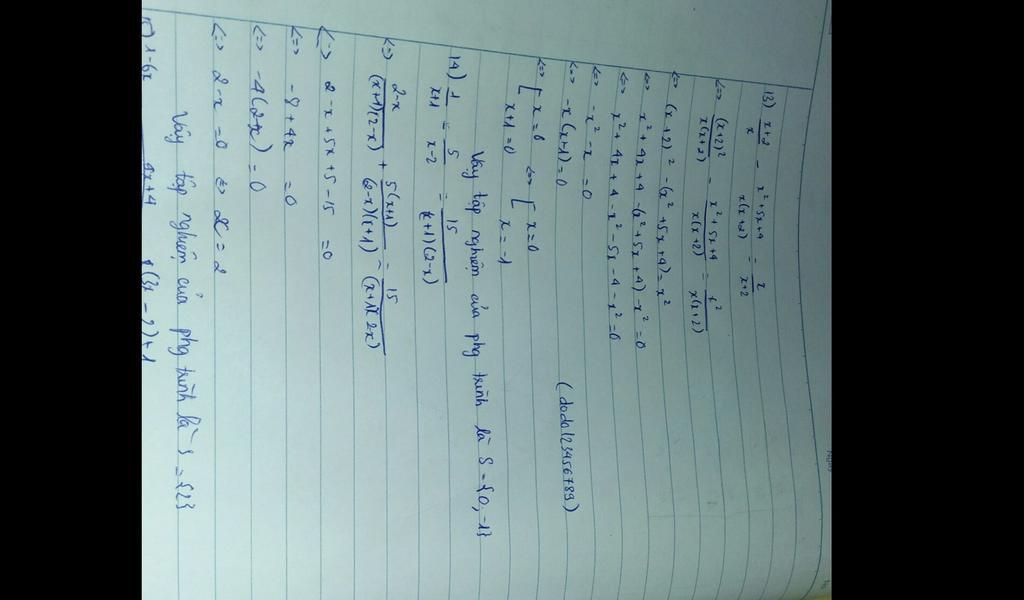 13) x+2/x - x²+5x+4/x(x+2) = x/x+2
<=> (x+2)²/x(x+2) = x²+5x+4/x(x+2) = x²/x(x+2)
<=> (x+2)² - (x²+5x+4) = x²
<=> x²+4x+4 - (x²+5x+4) - x² = 0
<=> x²+4x+4 - x² - 5x - 4 - x² = 0
<=> -x² - x = 0
<=> -x(x+1) = 0
(dodo123456789)
<=> [ x=0 <=> [ x=0
x+1=0 x=-1
Vậy tập nghiệm của phg trình là S = {0,-1}
14) 1/x+1 = 5/x-2 = 15/(x+1)(2-x)
<=> 2-x/(x+1)(2-x) + 5(x+1)/(2-x)(x+1) = 15/(x+1)(2x)
<=> 2-x+5x+5-15 = 0
<=> -8+4x = 0
<=> -4(2-x) = 0
<=> 2-x = 0 <=> x = 2
Vậy tập nghiệm của phg trình là S = {2}
15) 1-6x 9x+4